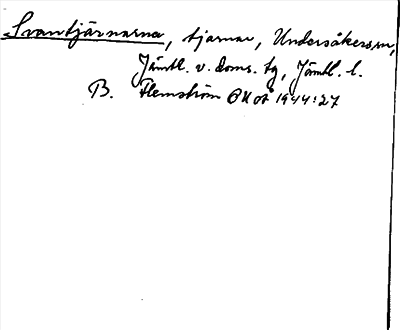 Svantjärnarna, tjarnar, Undersåkers sn,
Jämtl. v. doms. tg, Jämtl. l.
B. Flemström OUOÅ 1944:27